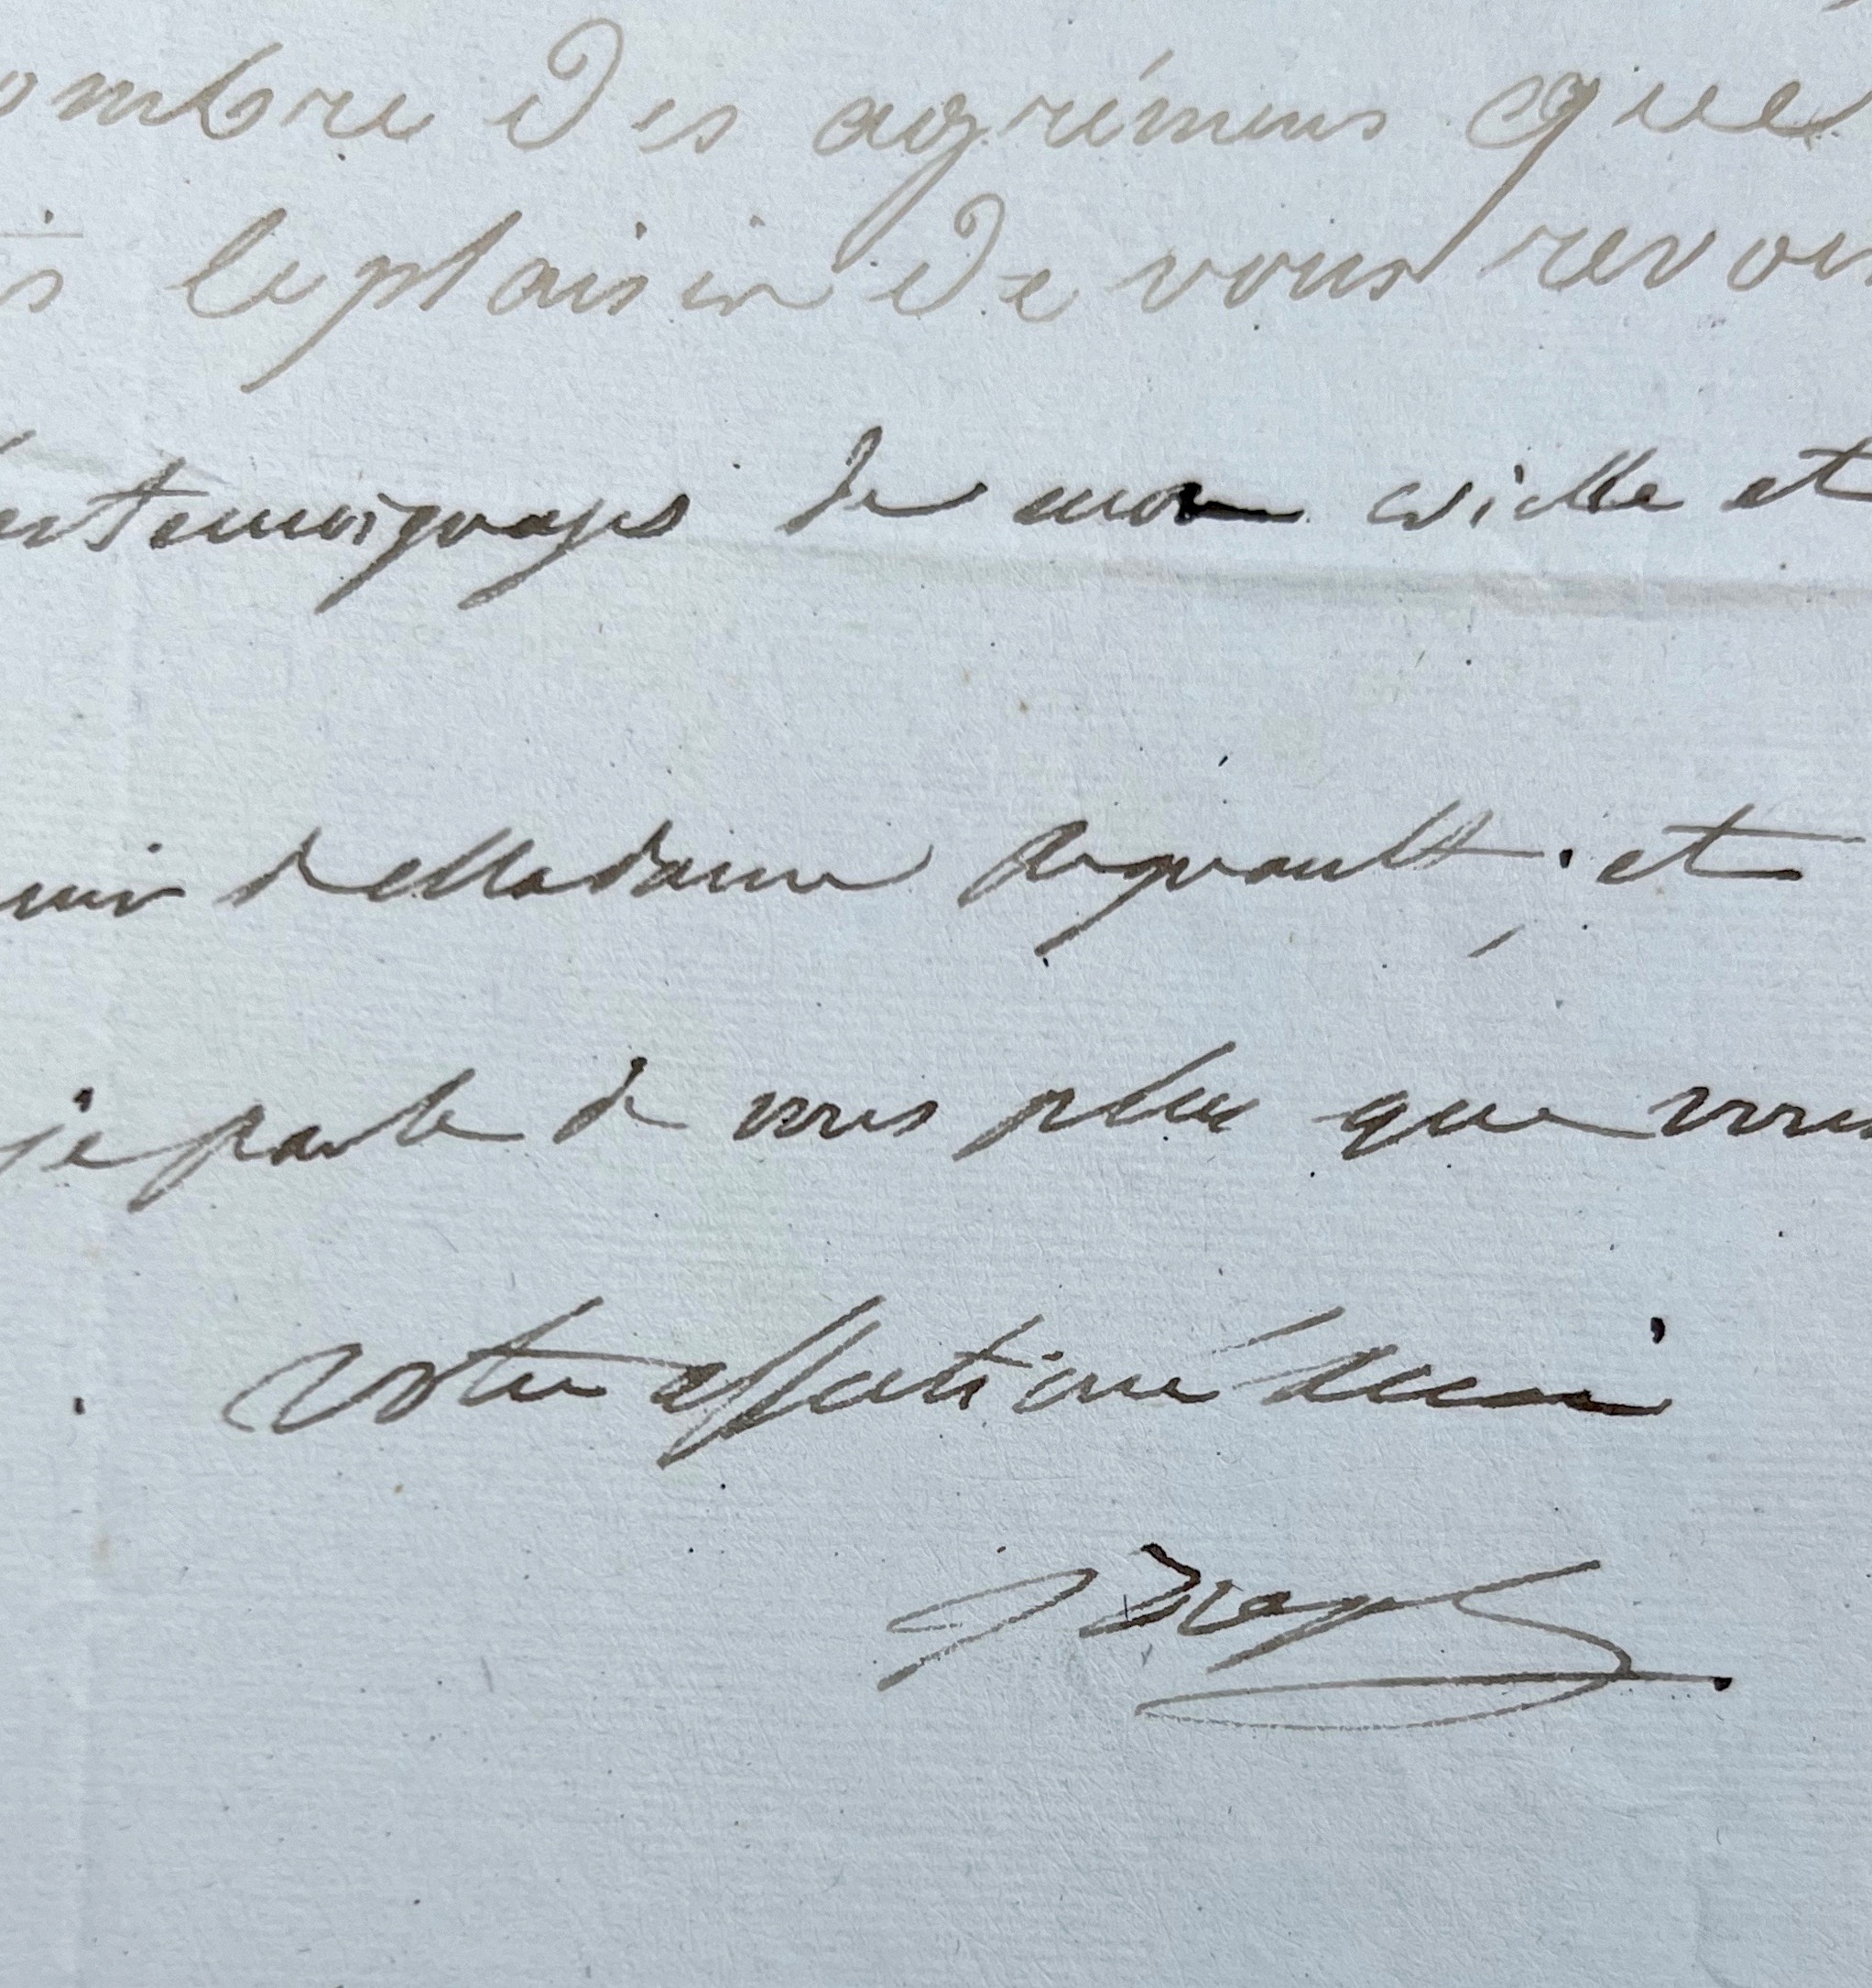 ombre des agrémens que
is le plaisir de vous revoir
les temoignages de mon vieille et
de Madame Regnault, et
je parle de vous plus que vous
votre affectionné ami